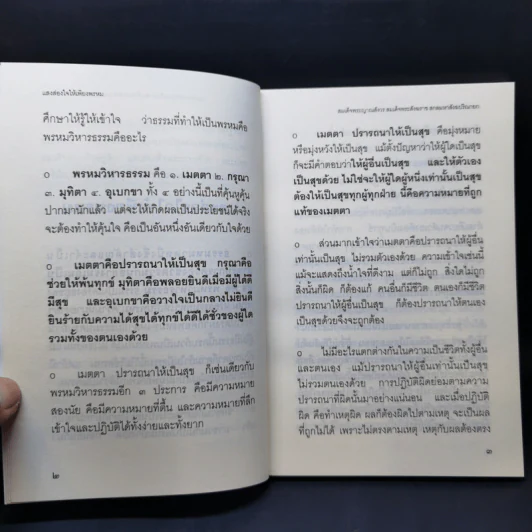 แสงส่องใจให้เพียงพรหม
ศึกษาให้รู้ให้เข้าใจ ว่าธรรมที่ทำให้เป็นพรหมคือ
พรหมวิหารธรรมคืออะไร
๐ พรหมวิหารธรรม คือ ๑. เมตตา ๒. กรุณา
๓. มุทิตา ๔. อุเบกขา ทั้ง ๔ อย่างนี้เป็นที่คุ้นหูคุ้น
ปากมานักแล้ว แต่จะให้เกิดผลเป็นประโยชน์ได้จริง
จะต้องทำให้คุ้นใจ คือเป็นอันหนึ่งอันเดียวกับใจด้วย
๐ เมตตาคือปรารถนาให้เป็นสุข กรุณาคือ
ช่วยให้พ้นทุกข์ มุทิตาคือพลอยยินดีเมื่อมีผู้ได้ดี
มีสุข และอุเบกขาคือวางใจเป็นกลางไม่ยินดี
ยินร้ายกับความได้สุขได้ทุกข์ได้ดีได้ชั่วของผู้ใด
รวมทั้งของตนเองด้วย
๐ เมตตา ปรารถนาให้เป็นสุข ก็เช่นเดียวกับ
พรหมวิหารธรรมอีก ๓ ประการ คือมีความหมาย
สองนัย คือมีความหมายที่ตื้น และความหมายที่ลึก
เข้าใจและปฏิบัติได้ทั้งง่ายและทั้งยาก
๒
สมเด็จพระญาณสังวร สมเด็จพระสังฆราช สกลมหาสังฆปริณายก
๐ เมตตา ปรารถนาให้เป็นสุข คือมุ่งหมาย
หรือมุ่งหวังให้เป็นสุข แม้ตั้งปัญหาว่าให้ผู้ใดเป็นสุข
ก็จะมีคำตอบว่าให้ผู้อื่นเป็นสุข และให้ตัวเอง
เป็นสุขด้วย ไม่ใช่จะให้ผู้ใดผู้หนึ่งเท่านั้นเป็นสุข
ต้องให้เป็นสุขทุกผู้ทุกฝ่าย นี้คือความหมายที่ถูก
แท้ของเมตตา
๐ ส่วนมากเข้าใจว่าเมตตาคือปรารถนาให้ผู้อื่น
เท่านั้นเป็นสุข ไม่รวมตัวเองด้วย ความเข้าใจเช่นนี้
แม้จะแสดงถึงน้ำใจที่ดีงาม แต่ก็ไม่ถูก สิ่งใดไม่ถูก
สิ่งนั้นก็ผิด ก็ต้องแก้ คนอื่นก็มีชีวิต ตนเองก็มีชีวิต
ปรารถนาให้ผู้อื่นเป็นสุข ก็ต้องปรารถนาให้ตนเอง
เป็นสุขด้วยจึงจะถูกต้อง
๐ ไม่มีอะไรแตกต่างกันในความเป็นชีวิตทั้งผู้อื่น
และตนเอง แม้ปรารถนาให้ผู้อื่นเท่านั้นเป็นสุข
ไม่รวมตนเองด้วย การปฏิบัติผิดย่อมตามความ
ปรารถนาที่ผิดนั้นมาอย่างแน่นอน และเมื่อปฏิบัติ
ผิด คือทำเหตุผิด ผลก็ต้องผิดไปตามเหตุ จะเป็นผล
ที่ถูกไม่ได้ เพราะไม่ตรงตามเหตุ เหตุกับผลต้องตรง
๓